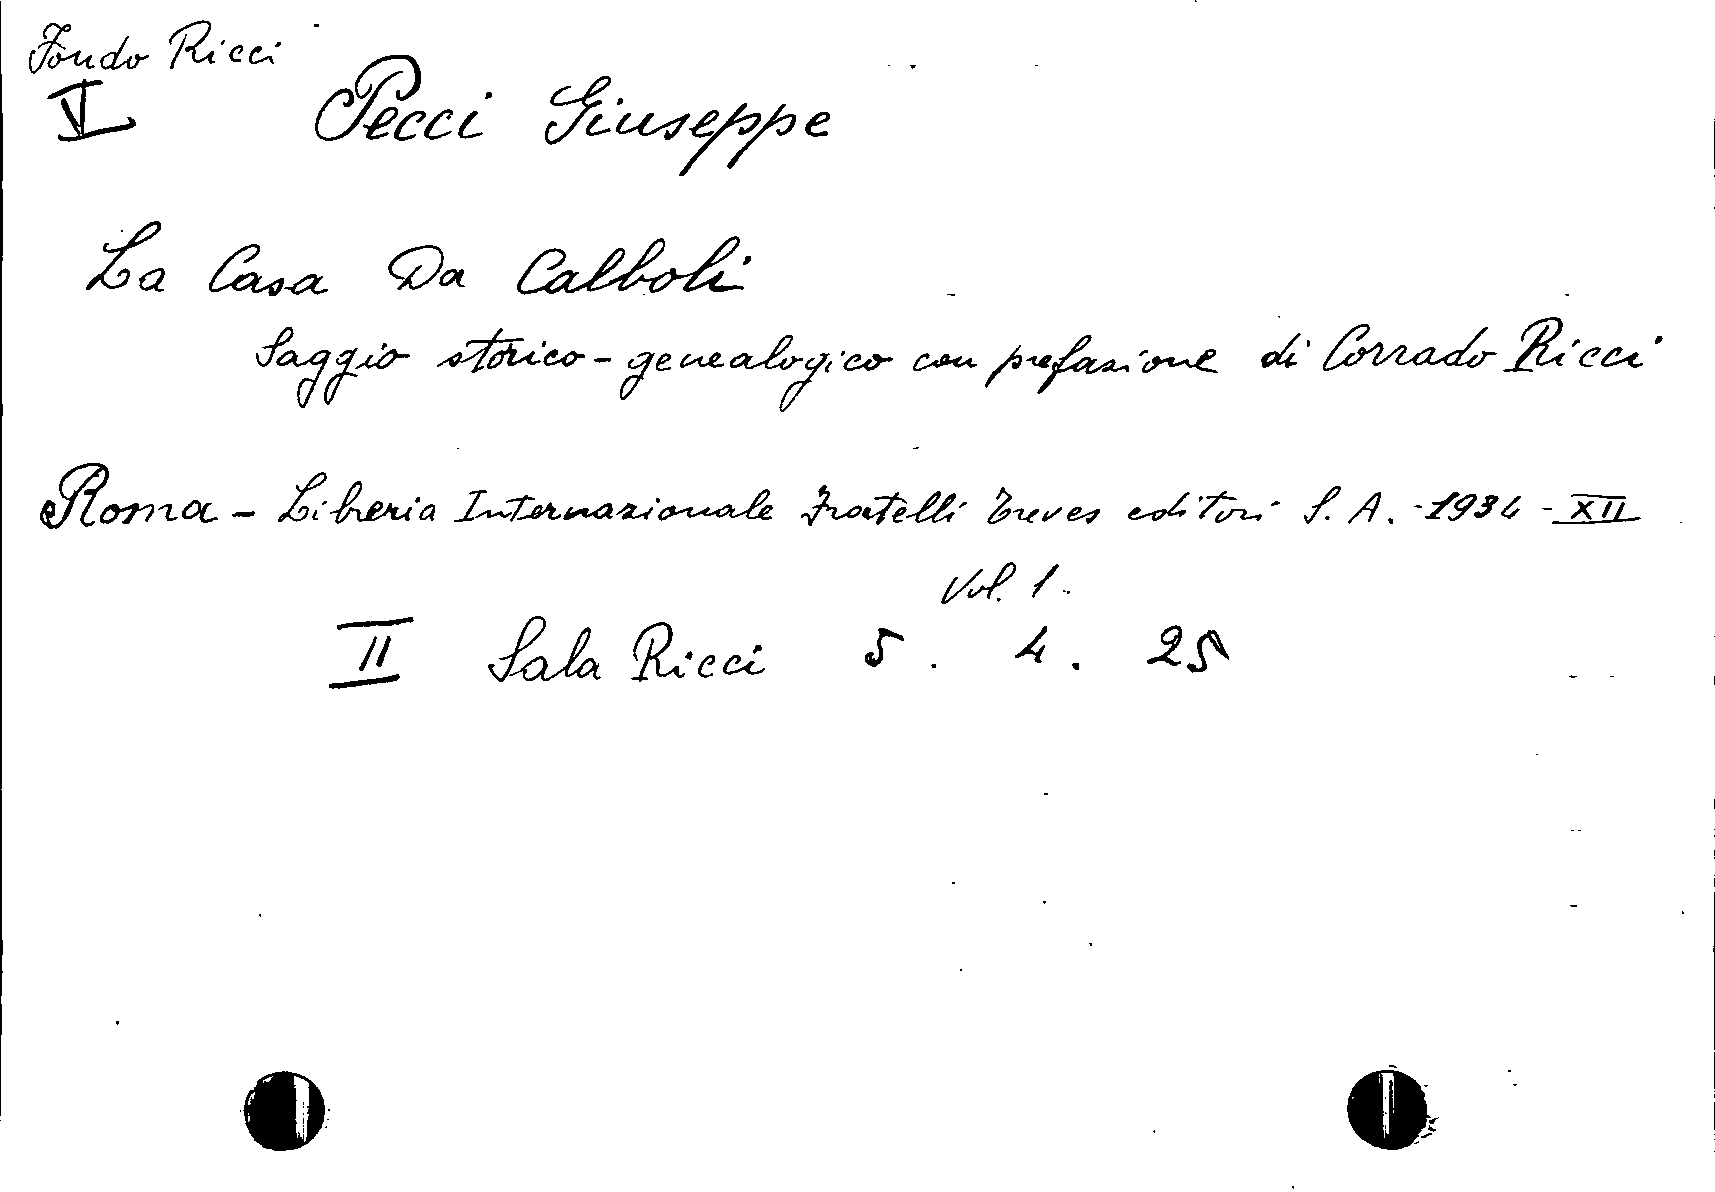 Fondo Ricci
V Pecci Giuseppe
La Casa Da Calboli
Saggio storico-genealogico con prefazione di Corrado Ricci
Roma - Libreria Internazionale Fratelli Treves editori S. A. - 1934 - XII
Vol. 1.
II Sala Ricci 5 . 4 . 25